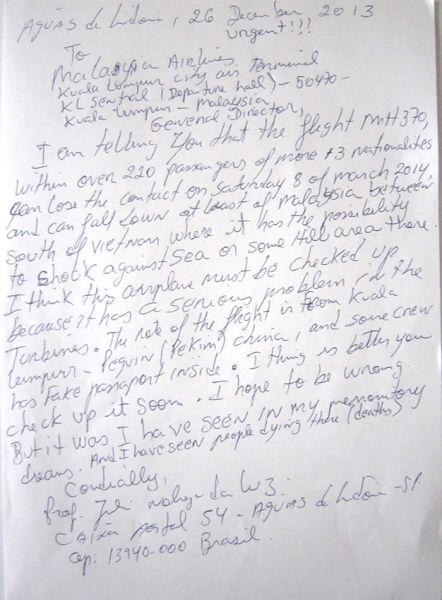 Aguas de Lidoia, 26 December 2013
Urgent!!!
To
Malaysia Airlines
Kuala Lumpur city air Terminal
KL Sentral (Departure hall) - 50470 -
Kuala Lumpur - Malaysia
General Director,
I am telling you that the flight MH370,
within over 220 passangers of more 13 nationalities
can lose the contact on Saturday 8 of march 2014,
and can fall down at least of Malaysia between
South of Vietnam where it has the possibility
to shock against sea or some Hill area there.
I think this airplane must be checked up
because it has a serious problem in the
Turbines. The rote of the flight is from Kuala
Lumpur - Pequin (Pekim) China, and some crew
has Fake passaport inside. I thing is better you
check up it soom. I hope to be wrong.
But it was I have seen in my premonitory
dreams. And I have seen people dying there (deaths)
Cordially,
Prof. da Luz.
Caixa Postal 54 - Aguas de Lidoia - SP
Cep. 13940-000 Brasil.